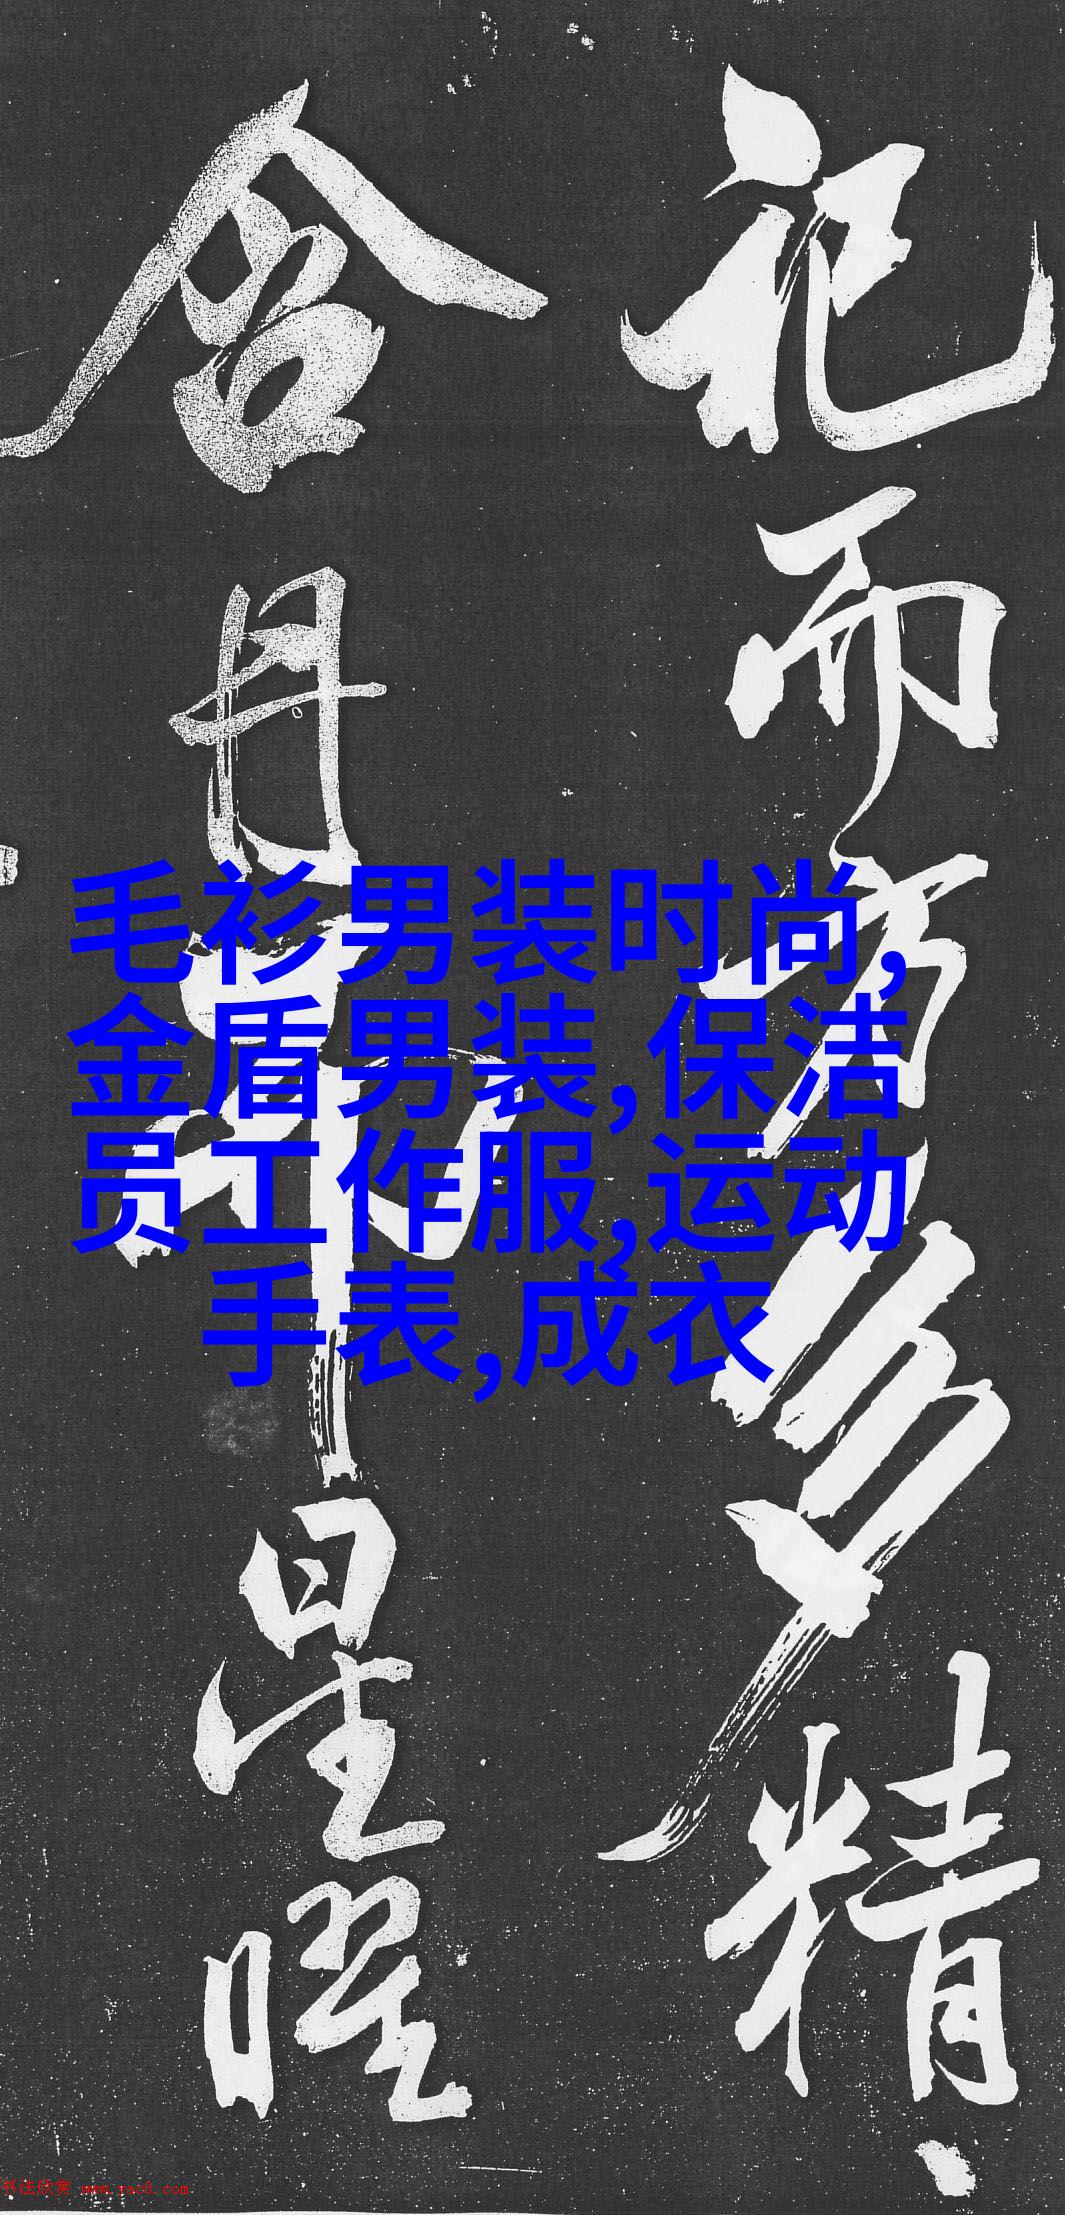 而方多精
含丹星曜
毛衫男装时尚,
金盾男装,保洁
员工作服,运动
手表,成衣
书法欣赏 www.yac8.com